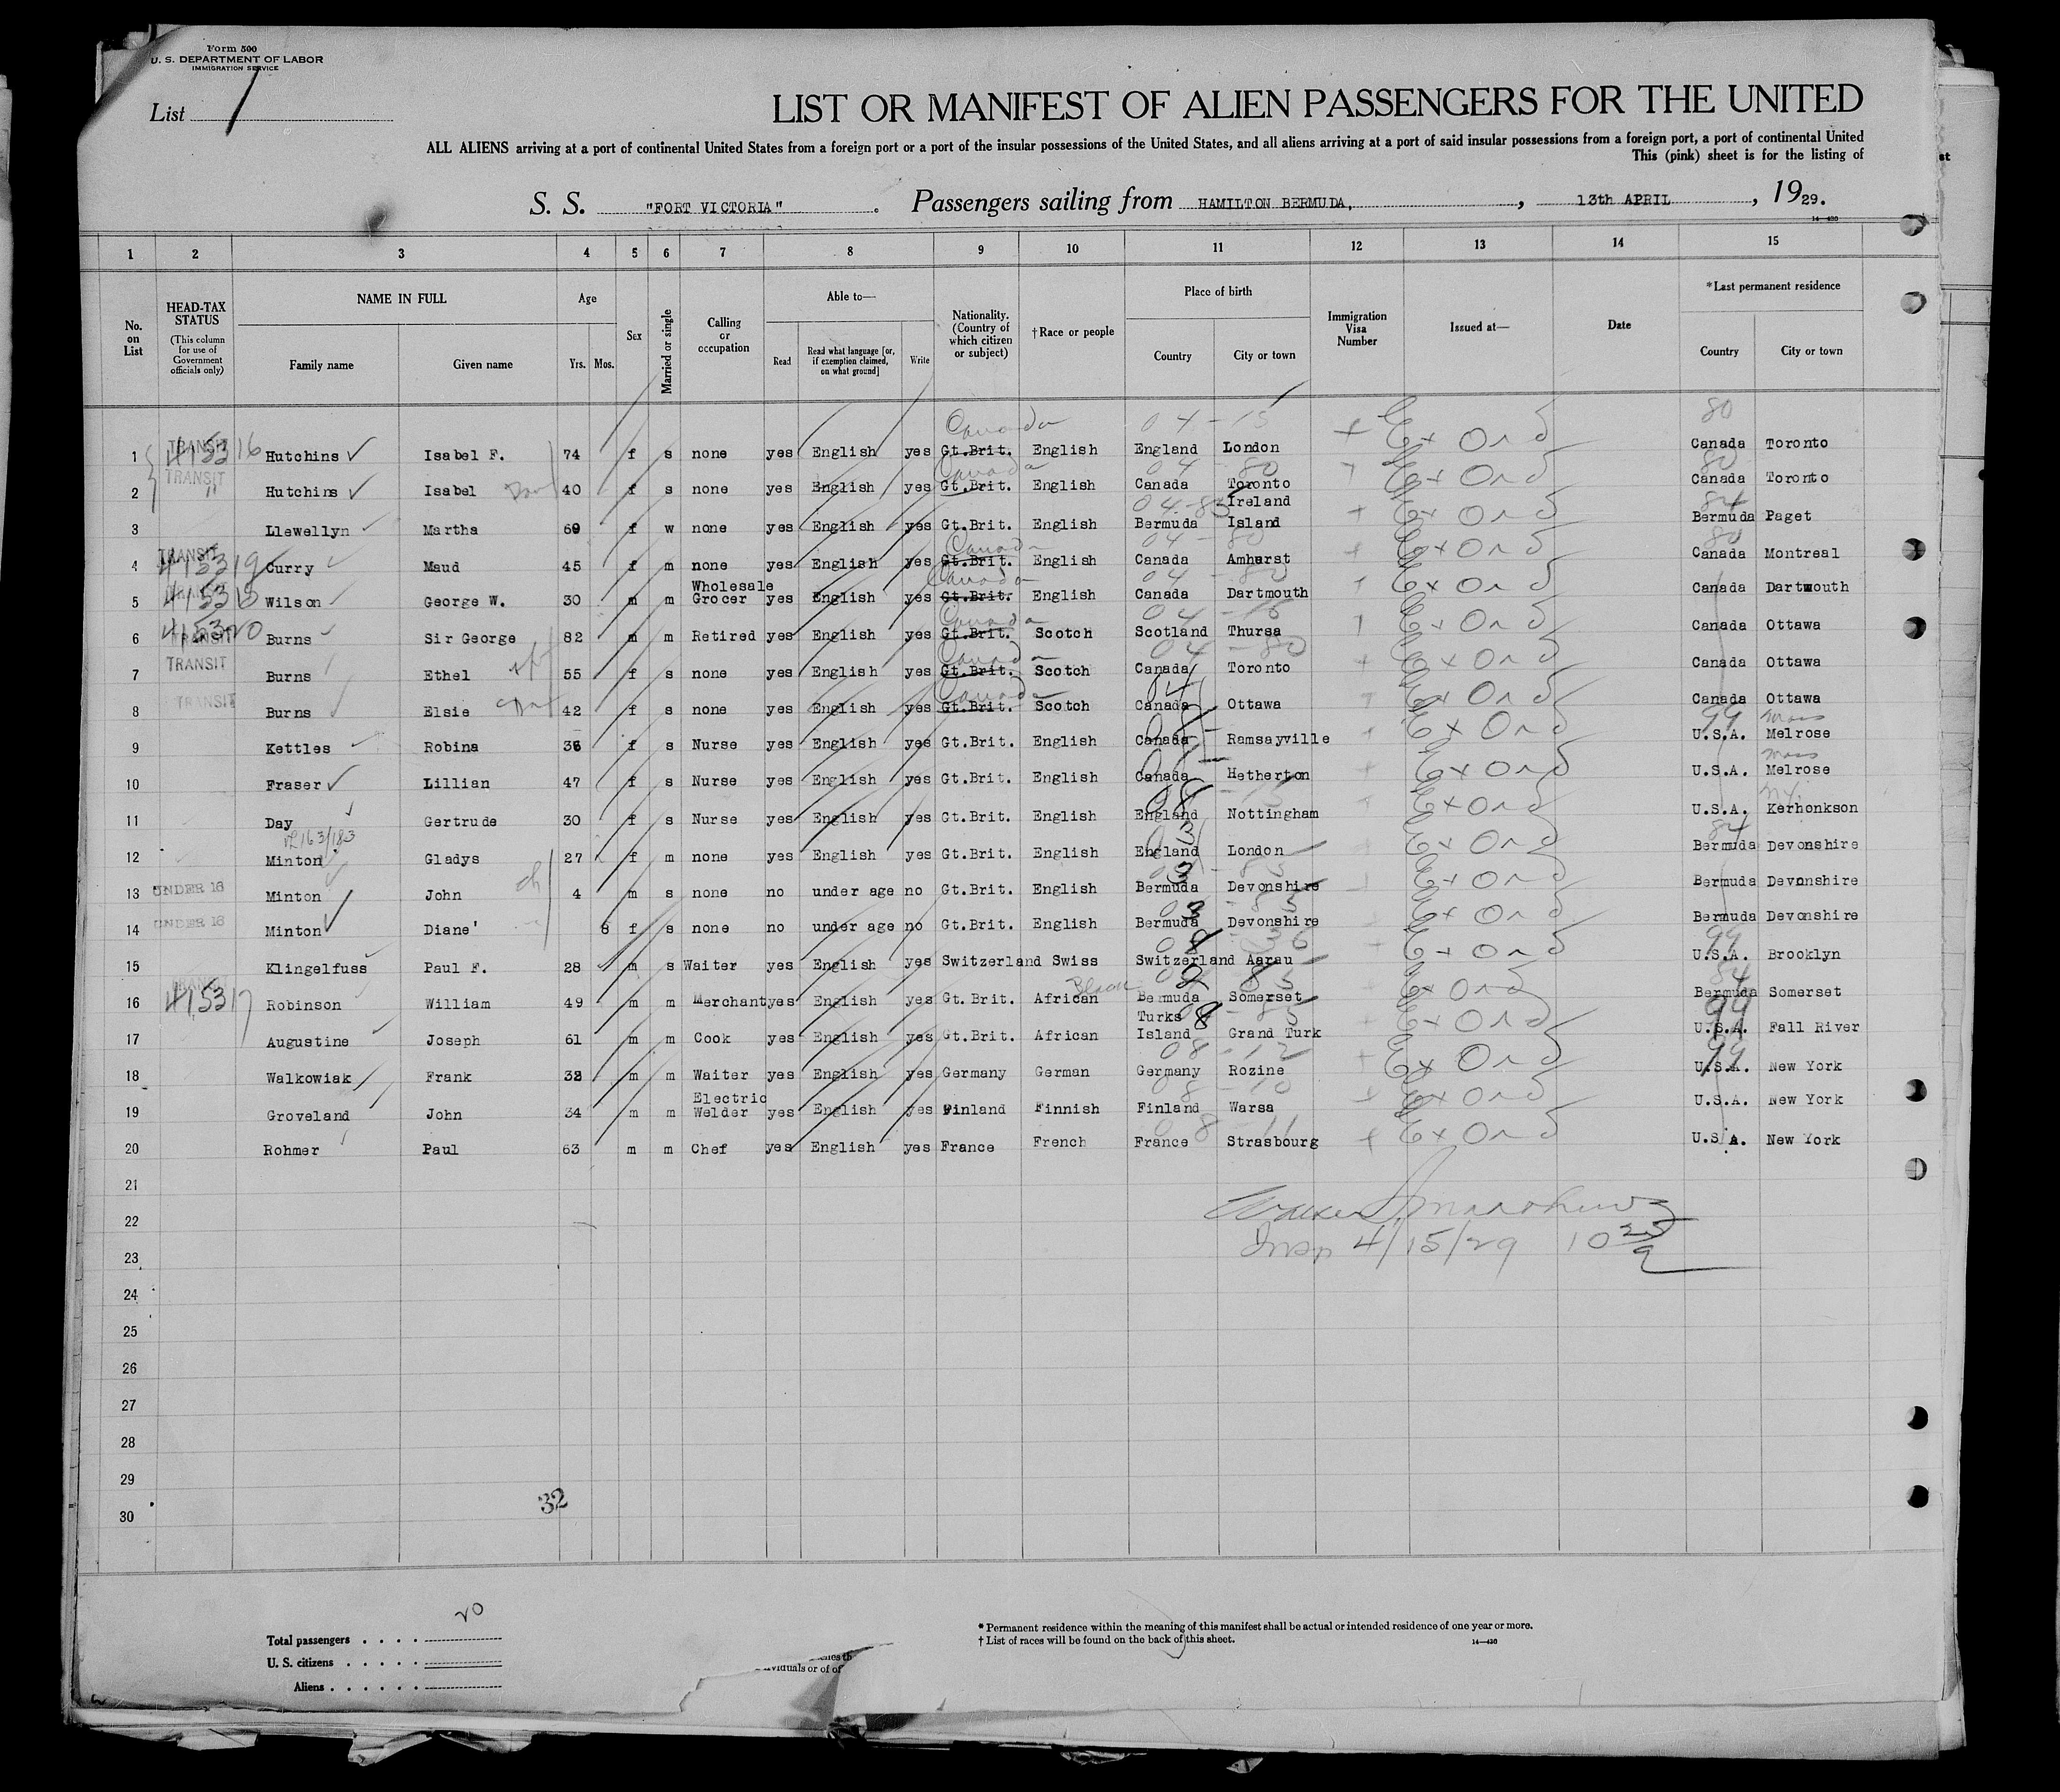 Form 500
U. S. DEPARTMENT OF LABOR
IMMIGRATION SERVICE
List 1
LIST OR MANIFEST OF ALIEN PASSENGERS FOR THE UNITED
ALL ALIENS arriving at a port of continental United States from a foreign port or a port of the insular possessions of the United States, and all aliens arriving at a port of said insular possessions from a foreign port, a port of continental United
This (pink) sheet is for the listing of
S. S. "FORT VICTORIA". Passengers sailing from HAMILTON BERMUDA, , 13th APRIL , 1929.
14-430
1 2 3 4 5 6 7 8 9 10 11 12 13 14 15
No. on List
HEAD-TAX STATUS (This column for use of Government officials only)
NAME IN FULL Family name Given name
Age Yrs. Mos.
Sex
Married or single
Calling or occupation
Able to— Read Read what language [or, if exemption claimed, on what ground] Write
Nationality. (Country of which citizen or subject)
†Race or people
Place of birth Country City or town
Immigration Visa Number
Issued at—
Date
*Last permanent residence Country City or town
1 TRANSIT 415316 Hutchins Isabel F. 74 f s none yes English yes Gt.Brit. Canada English England London 04-15 Ex Ord 80 Canada Toronto
2 TRANSIT " Hutchins Isabel 40 f s none yes English yes Gt.Brit. Canada English Canada Toronto 04-80 Ex Ord 80 Canada Toronto
3 Llewellyn Martha 69 f w none yes English yes Gt.Brit. English Bermuda Ireland Island 04-83 Ex Ord 84 Bermuda Paget
4 TRANSIT 415319 Curry Maud 45 f m none yes English yes Gt.Brit. Canada English Canada Amherst 04-80 Ex Ord 80 Canada Montreal
5 TRANSIT Wilson George W. 30 m m Wholesale Grocer yes English yes Gt.Brit. Canada English Canada Dartmouth 04-80 Ex Ord Canada Dartmouth
6 TRANSIT 415320 Burns Sir George 82 m m Retired yes English yes Gt.Brit. Canada Scotch Scotland Thursa 04-16 Ex Ord Canada Ottawa
7 TRANSIT Burns Ethel 55 f s none yes English yes Gt.Brit. Canada Scotch Canada Toronto 04-80 Ex Ord Canada Ottawa
8 TRANSIT Burns Elsie 42 f s none yes English yes Gt.Brit. Canada Scotch Canada Ottawa Ex Ord Canada Ottawa
9 Kettles Robina 36 f s Nurse yes English yes Gt.Brit. English Canada Ramsayville Ex Ord 99 U.S.A. Melrose Mass
10 Fraser Lillian 47 f s Nurse yes English yes Gt.Brit. English Canada Hetherton Ex Ord U.S.A. Melrose Mass
11 Day Gertrude 30 f s Nurse yes English yes Gt.Brit. English England Nottingham Ex Ord U.S.A. Kerhonkson N.Y.
12 Minton Gladys 27 f m none yes English yes Gt.Brit. English England London Ex Ord 84 Bermuda Devonshire
13 UNDER 16 Minton John ch 4 m s none no under age no Gt.Brit. English Bermuda Devonshire Ex Ord Bermuda Devonshire
14 UNDER 16 Minton Diane' 6 f s none no under age no Gt.Brit. English Bermuda Devonshire Ex Ord Bermuda Devonshire
15 Klingelfuss Paul F. 28 m s Waiter yes English yes Switzerland Swiss Switzerland Aarau Ex Ord 99 U.S.A. Brooklyn
16 TRANSIT 415317 Robinson William 49 m m Merchant yes English yes Gt.Brit. African Black Bermuda Somerset Ex Ord 84 Bermuda Somerset
17 Augustine Joseph 61 m m Cook yes English yes Gt.Brit. African Turks Island Grand Turk Ex Ord 99 U.S.A. Fall River
18 Walkowiak Frank 38 m m Waiter yes English yes Germany German Germany Rozine 08-12 Ex Ord 99 U.S.A. New York
19 Groveland John 34 m m Electric Welder yes English yes Finland Finnish Finland Warsa 08-10 Ex Ord U.S.A. New York
20 Rohmer Paul 63 m m Chef yes English yes France French France Strasbourg 08-11 Ex Ord U.S.A. New York
21
22
Insp 4/15/29
23
24
25
26
27
28
29
30
32
Total passengers . . . . 20
U. S. citizens . . . . .
Aliens . . . . . .
ividuals or of of
* Permanent residence within the meaning of this manifest shall be actual or intended residence of one year or more.
† List of races will be found on the back of this sheet.
14-430